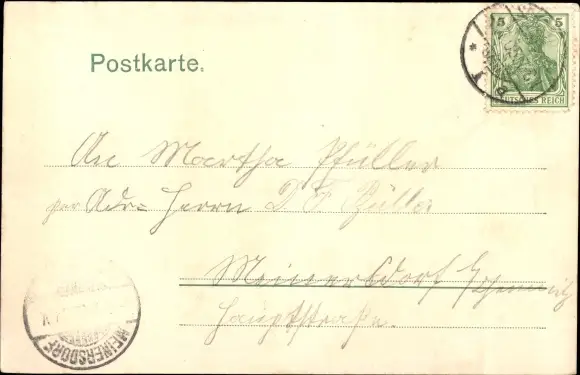 5 5
DEUTSCHES REICH
Postkarte.
An Martha Pfüller
per Adr= Herrn D. F. Püller
Meinersdorf
Hauptstraße.
MEINERSDORF